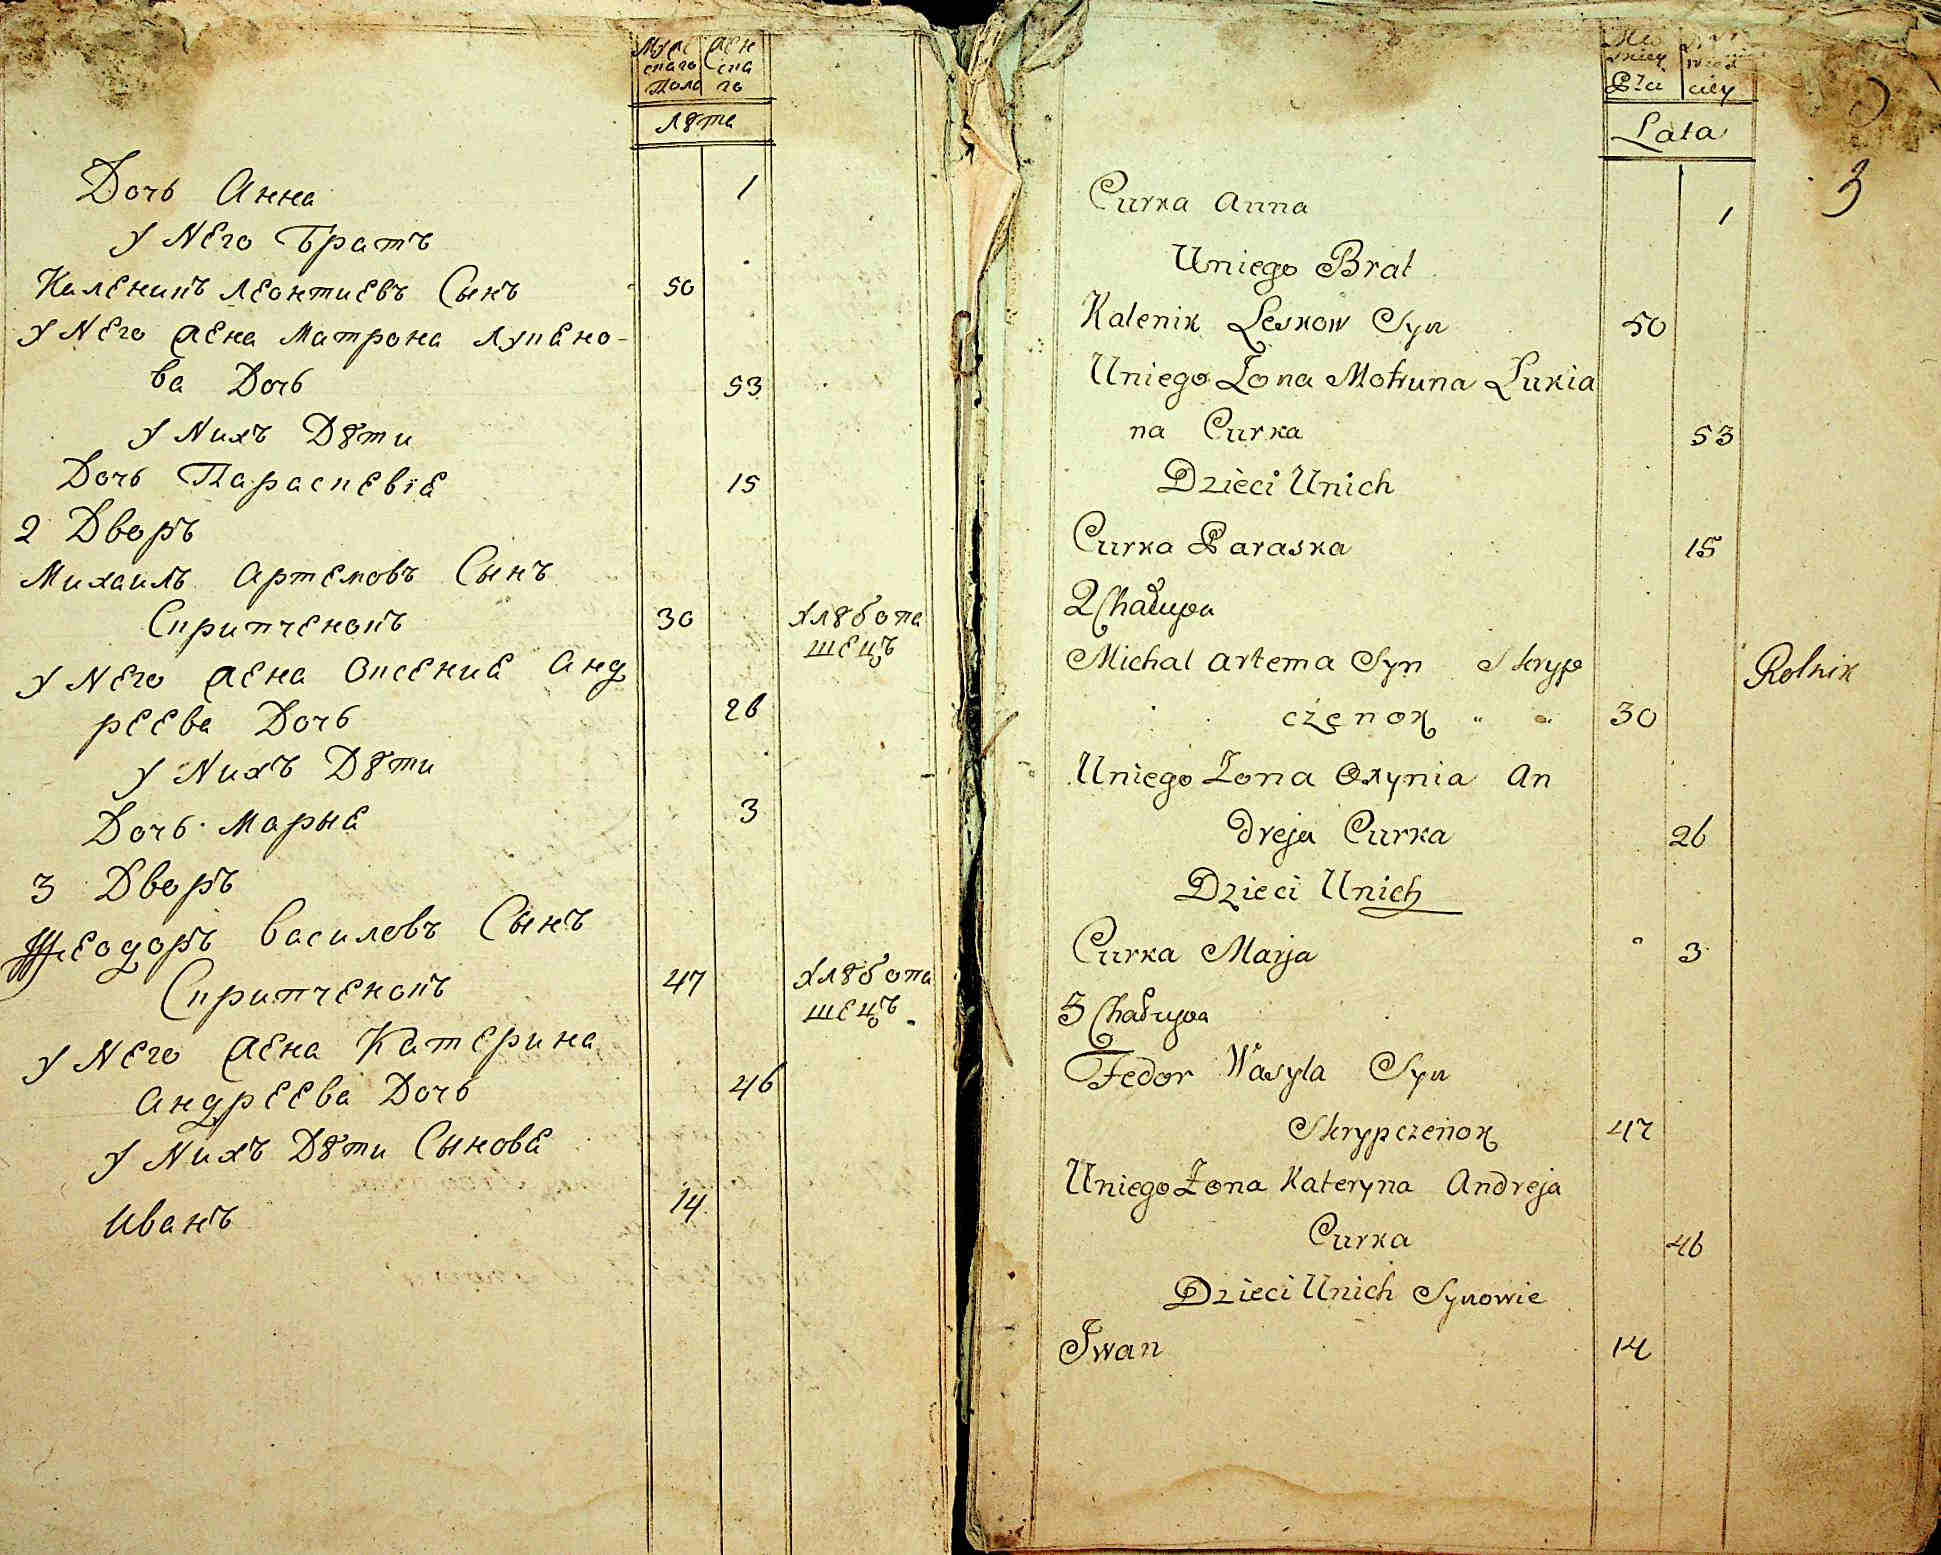 Муже Жен
скаго ска
Пола го
Лѣта
Дочь Анна 1
у Него Братъ
Каленикъ Леонтиевъ Сынъ 50
у Него Жена Матрона Лукяно-
ва Дочь 53
у Нихъ Дѣти
Дочь Параскевiя 15
2 Дворъ
Михаилъ Артемовъ Сынъ
Скрипченокъ 30 хлѣбопа
шецъ
у Него Жена Оксения Анд
реева Дочь 26
у Нихъ Дѣти
Дочь Марья 3
3 Дворъ
Ѳеодоръ Василовъ Сынъ
Скрипченокъ 47 хлѣбопа
шецъ.
у Него Жена Катерина
Андреева Дочь 46
у Нихъ Дѣти Сыновя
Иванъ 14
Płci
Lata
3
Curka Anna 1
Uniego Brat
Kalenik Leskow Syn 50
Uniego Żona Motruna Lukia
na Curka 53
Dzieci Unich
Curka Paraska 15
2 Chałupa
Michal Artema Syn Skryp Rolnik
czenok 30
Uniego Żona Oxynia An
dreja Curka 26
Dzieci Unich
Curka Marja 3
3 Chałupa
Fedor Wasyla Syn
Skrypczenok 47
Uniego Żona Kateryna Andreja
Curka 46
Dzieci Unich Synowie
Iwan 14